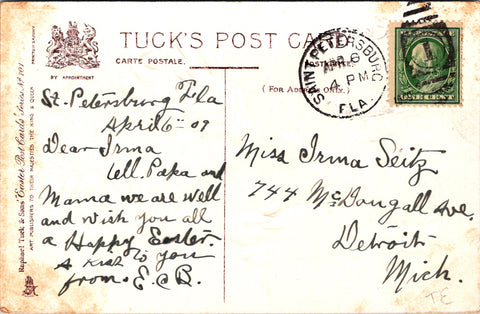 TUCK'S POST CARD
CARTE POSTALE.
POSTKARTE.
BY APPOINTMENT
(FOR ADDRESS ONLY.)
SAINT PETERSBURG
APR 6
4 PM
FLA.
ONE CENT
Raphael Tuck & Sons' "Easter Post Cards" Series No.
ART PUBLISHERS TO THEIR MAJESTIES THE KING & QUEEN
PRINTED IN
St. Petersburg Fla
April 6th 09
Dear Irma
Tell Papa and
Mama we are well
and wish you all
a Happy Easter.
A Kiss to you
from E.C.B.
Miss Irma Seitz
744 McDougall Ave.
Detroit
Mich.
TE